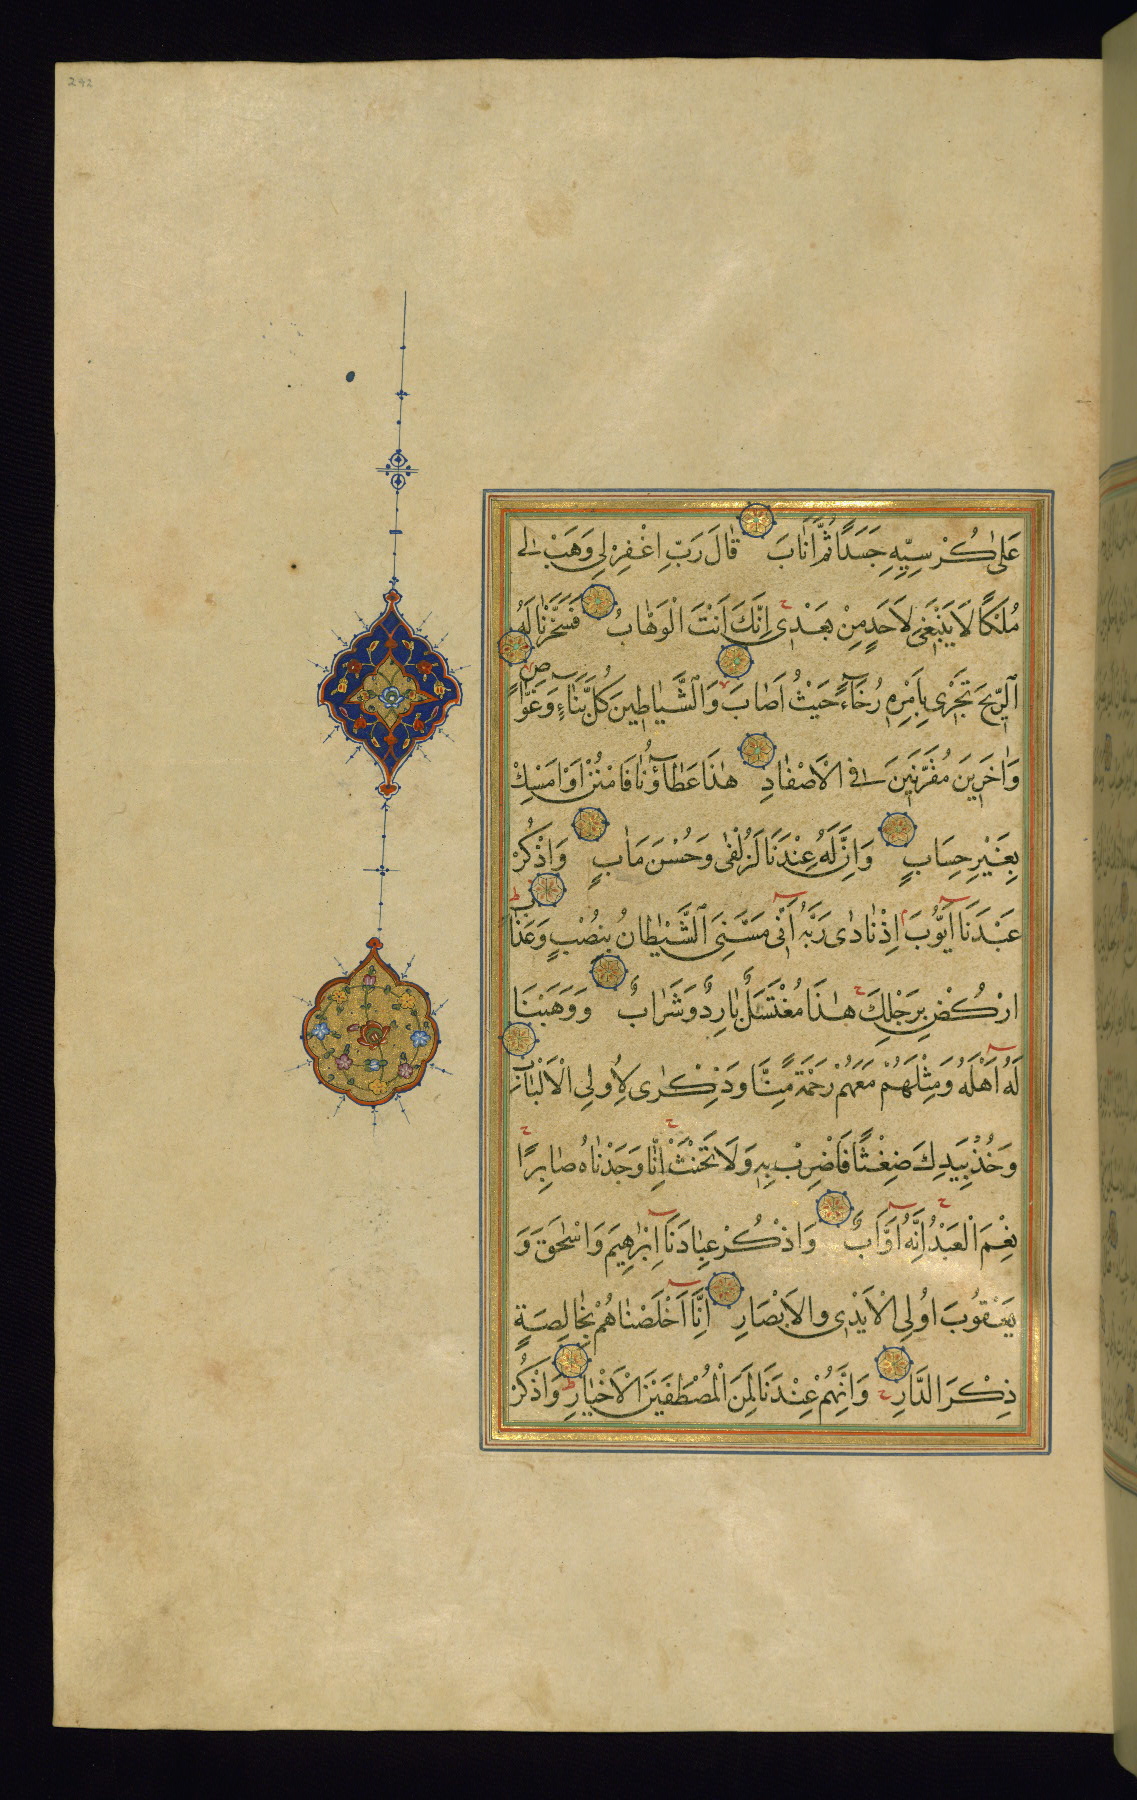 242
عَلٰى كُرْسِيِّهِ جَسَدًا ثُمَّ اَنَابَ قٰالَ رَبِّ اغْفِرْ لِي وَهَبْ لي
مُلْكًا لَا يَنْبَغِي لِاَحَدٍ مِنْ بَعْدِي اِنَّكَ اَنْتَ الْوَهّٰابُ فَسَخَّرْنٰا لَهُ
الرِّيحَ تَجْرِي بِاَمْرِهِ رُخَاۤءً حَيْثُ اَصٰابَ وَالشَّيٰاطِينَ كُلَّ بَنّٰاۤءٍ وَغَوّٰاصٍ
وَاٰخَرِينَ مُقَرَّنِينَ فِي الْاَصْفٰادِ هٰذَا عَطٰاۤؤُنٰا فَامْنُنْ اَوْ اَمْسِكْ
بِغَيْرِ حِسَابٍ وَاِنَّ لَهُ عِنْدَنَا لَزُلْفٰى وَحُسْنَ مَاٰبٍ وَاذْكُرْ
عَبْدَنَا اَيُّوبَ اِذْ نٰادٰى رَبَّهُ اَنِّي مَسَّنِيَ الشَّيْطٰانُ بِنُصْبٍ وَعَذٰابٍ
ارْكُضْ بِرِجْلِكَ هٰذَا مُغْتَسَلٌ بٰارِدٌ وَشَرَابٌ وَوَهَبْنَا
لَهُ اَهْلَهُ وَمِثْلَهُمْ مَعَهُمْ رَحْمَةً مِنَّا وَذِكْرٰى لِاُولِي الْاَلْبٰابِ
وَخُذْ بِيَدِكَ ضِغْثًا فَاضْرِبْ بِهِ وَلَا تَحْنَثْ اِنّٰا وَجَدْنٰاهُ صٰابِرًا
نِعْمَ الْعَبْدُ اِنَّهُ اَوَّابٌ وَاذْكُرْ عِبٰادَنَا اِبْرٰهِيمَ وَاِسْحٰقَ وَ
يَعْقُوبَ اُولِي الْاَيْدِي وَالاَبْصَارِ اِنَّا اَخْلَصْنٰاهُمْ بِخٰالِصَةٍ
ذِكْرَ الدَّارِ وَاِنَّهُمْ عِنْدَنَا لَمِنَ الْمُصْطَفَيْنَ الْاَخْيٰارِ وَاذْكُرْ